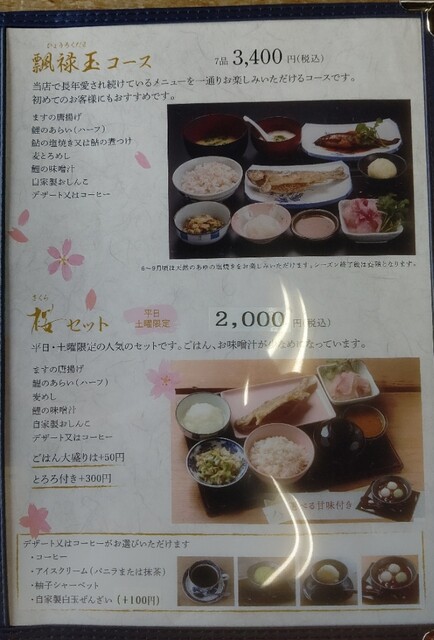 ひょうろくだま
瓢禄玉コース
7品 3,400円(税込)
当店で長年愛され続けているメニューを一通りお楽しみいただけるコースです。
初めてのお客様にもおすすめです。
ますの唐揚げ
鯉のあらい(ハーフ)
鮎の塩焼き又は鮎の煮つけ
麦とろめし
鯉の味噌汁
自家製おしんこ
デザート又はコーヒー
さくら
桜セット
平日
土曜限定
2,000円(税込)
平日・土曜限定の人気のセットです。ごはん、お味噌汁が少なめになっています。
ますの唐揚げ
鯉のあらい(ハーフ)
麦めし
鯉の味噌汁
自家製おしんこ
デザート又はコーヒー
ごはん大盛りは+50円
とろろ付き+300円
べる甘味付き
デザート又はコーヒーがお選びいただけます
・コーヒー
・アイスクリーム(バニラまたは抹茶)
・柚子シャーベット
・自家製白玉ぜんざい(+100円)